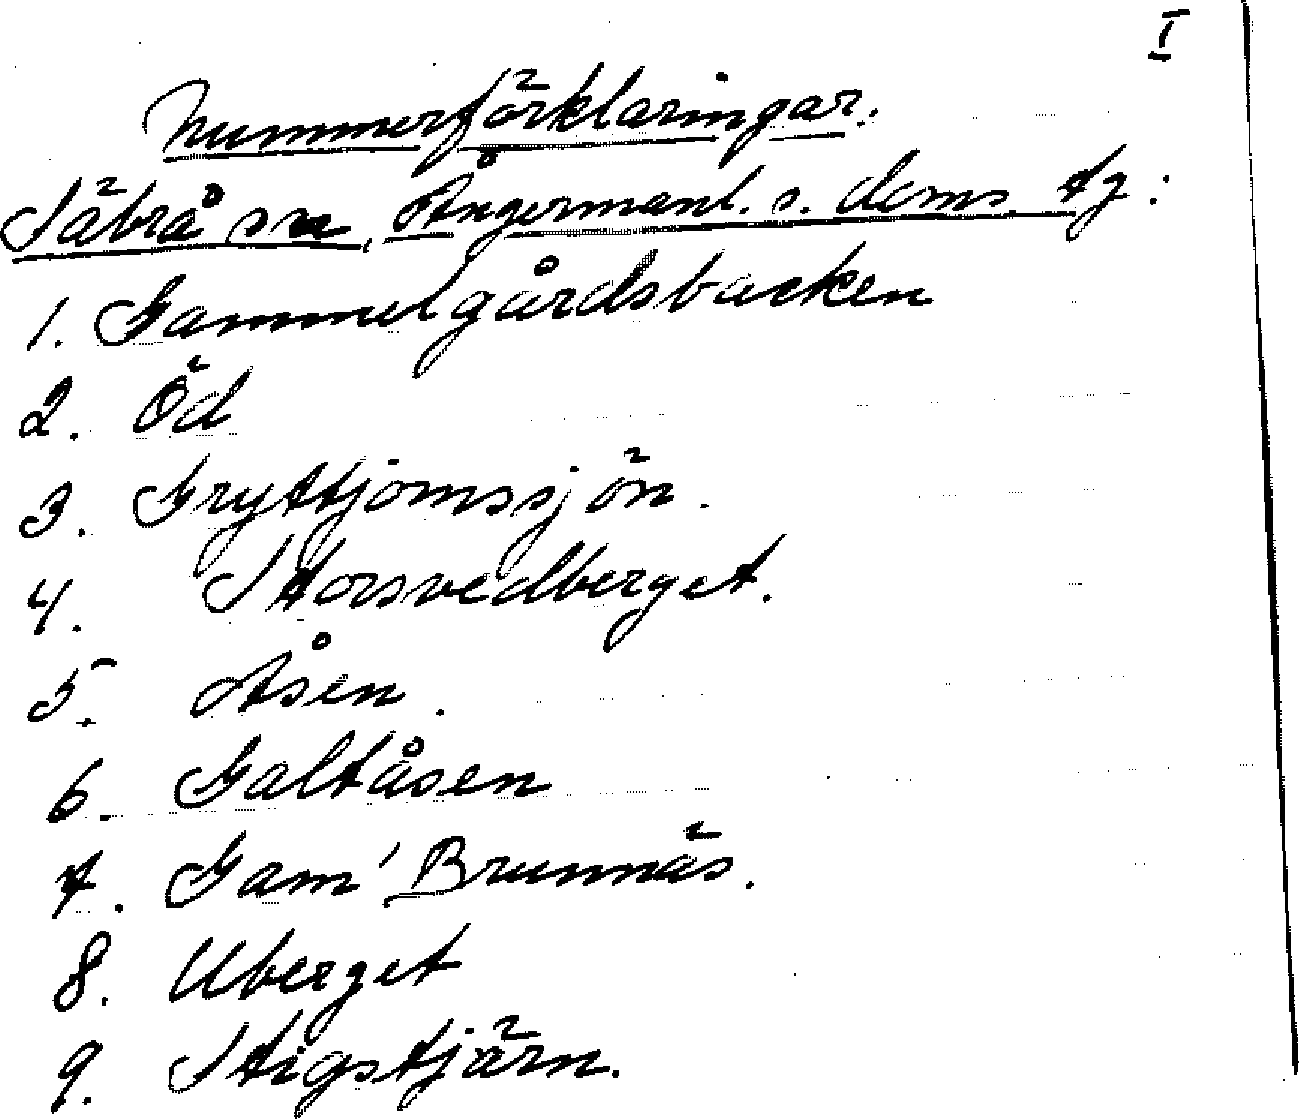 I
Nummerförklaringar.
Säbrå sn, Ångermanl. s. doms. tg:
1. Gammelgårdsbacken
2. Öd
3. Gryttjomssjön.
4. Storsvedberget.
5. Åsen.
6. Galtåsen
7. Gam' Brunnäs.
8. Uberget
9. Stigstjärn.